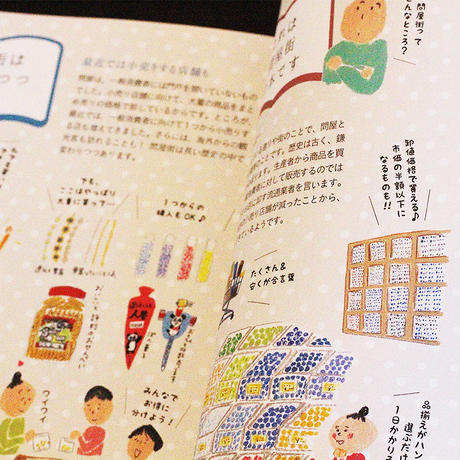 街は
つつ
最近では小売をする店舗も
問屋は、一般消費者には門戸を開いていないもの
でした。小売り店舗に向けて、大量の商品をまと
め売りの価格で卸しているからです。ところが、
最近では、一般消費者に向けて1つから小売りす
る店も増えてきました。さらには、海外からの観
光客も訪れることも! 問屋街は長い歴史の中で
変わりつつあります。
でも、
ここはやっぱり
大量に買って…
1つからの
購入もOK♪
ワイワイ
みんなで
お得に
分けよう!
問屋街って
んなところ?
れは
問屋街
です
り、鎌
生産者から商品を買
者に対して販売するのでは
流通業者を言います。
り店舗が減ったことから、
ているようです。
卸値価格で買える♪
市価の半額以下に
なるものも!!
たくさん&
安くが合言葉
品揃えがハン
選ぶだけ
1日かかりそ